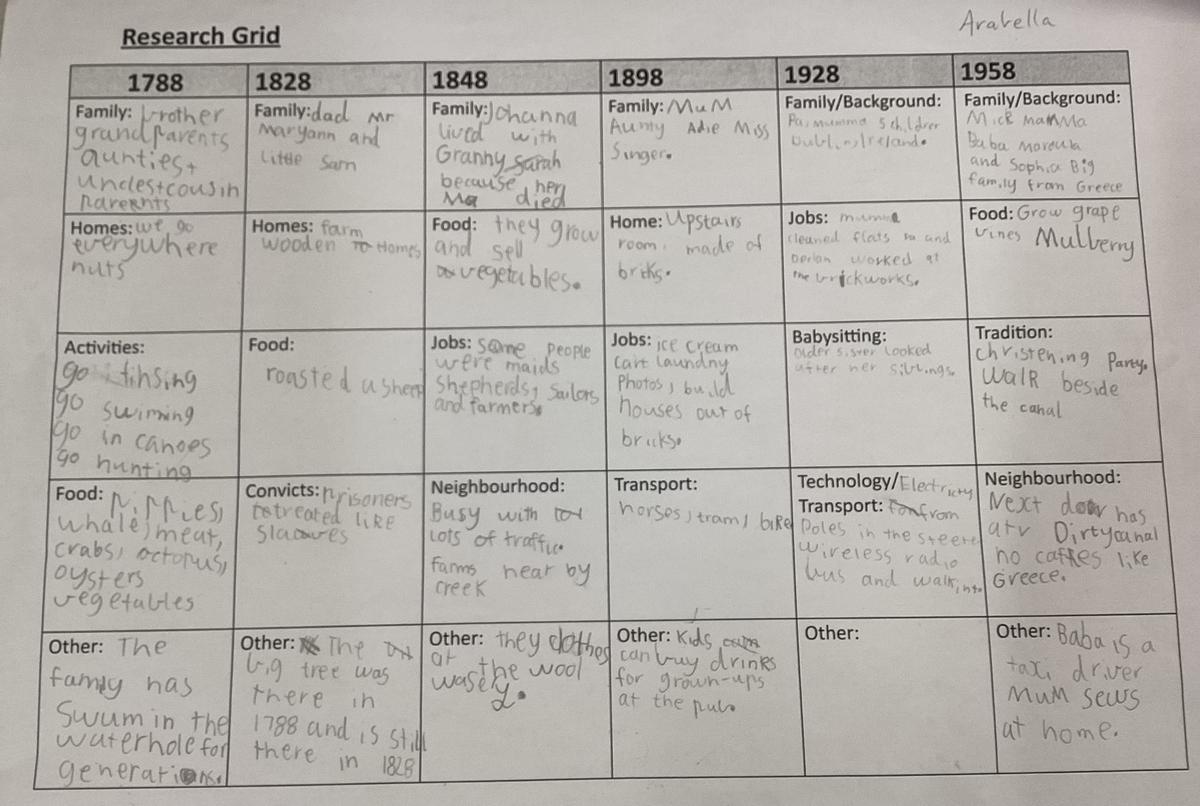 Arabella
Research Grid
1788
1828
1848
1898
1928
1958
Family: brother
grandparents
aunties+
uncles+cousin
parernts
Family: dad Mr
Maryann and
little Sam
Family: Johanna
lived with
Granny Sarah
because her
Ma died
Family: MuM
Aunty Adie Miss
Singer.
Family/Background:
Pa, mumma 5 children
Dublin, Ireland.
Family/Background:
Mick mamma
Baba Maroula
and Sophia Big
family from Greece
Homes: we go
everywhere
nuts
Homes: farm
wooden Homes
Food: they grow
and sell
vegetables.
Home: Upstairs
room. made of
briks.
Jobs: mumma
cleaned flats Pa and
worked at
the brickworks.
Food: Grow grape
vines Mulberry
Activities:
go fihsing
go swiming
go in canoes
go hunting
Food:
roasted a sheep
Jobs: Some people
were maids
shepherds, Sailors
and farmers.
Jobs: ice cream
cart laundry
Photos, build
houses out of
bricks.
Babysitting:
older sister looked
after her siblings.
Tradition:
christening Party.
Walk beside
the canal
Food: Pippies,
whale, meat,
crabs, octopus,
oysters
vegetables
Convicts: prisoners
treated like
Neighbourhood:
Busy with
lots of traffic.
farms near by
creek
Transport:
horses, tram, bike
Technology/Electricty
Transport: from
Poles in the steert
wireless radio
bus and walk
Neighbourhood:
Next door has
a tv Dirty canal
no caffes like
Greece.
Other: The
family has
Swum in the
waterhole for
generations.
Other: The
big tree was
there in
1788 and is still
there in 1828
Other: they clothes
at the wool
wasery.
Other: Kids
can buy drinks
for grown-ups
at the pub.
Other:
Other: Baba is a
taxi driver
Mum sews
at home.